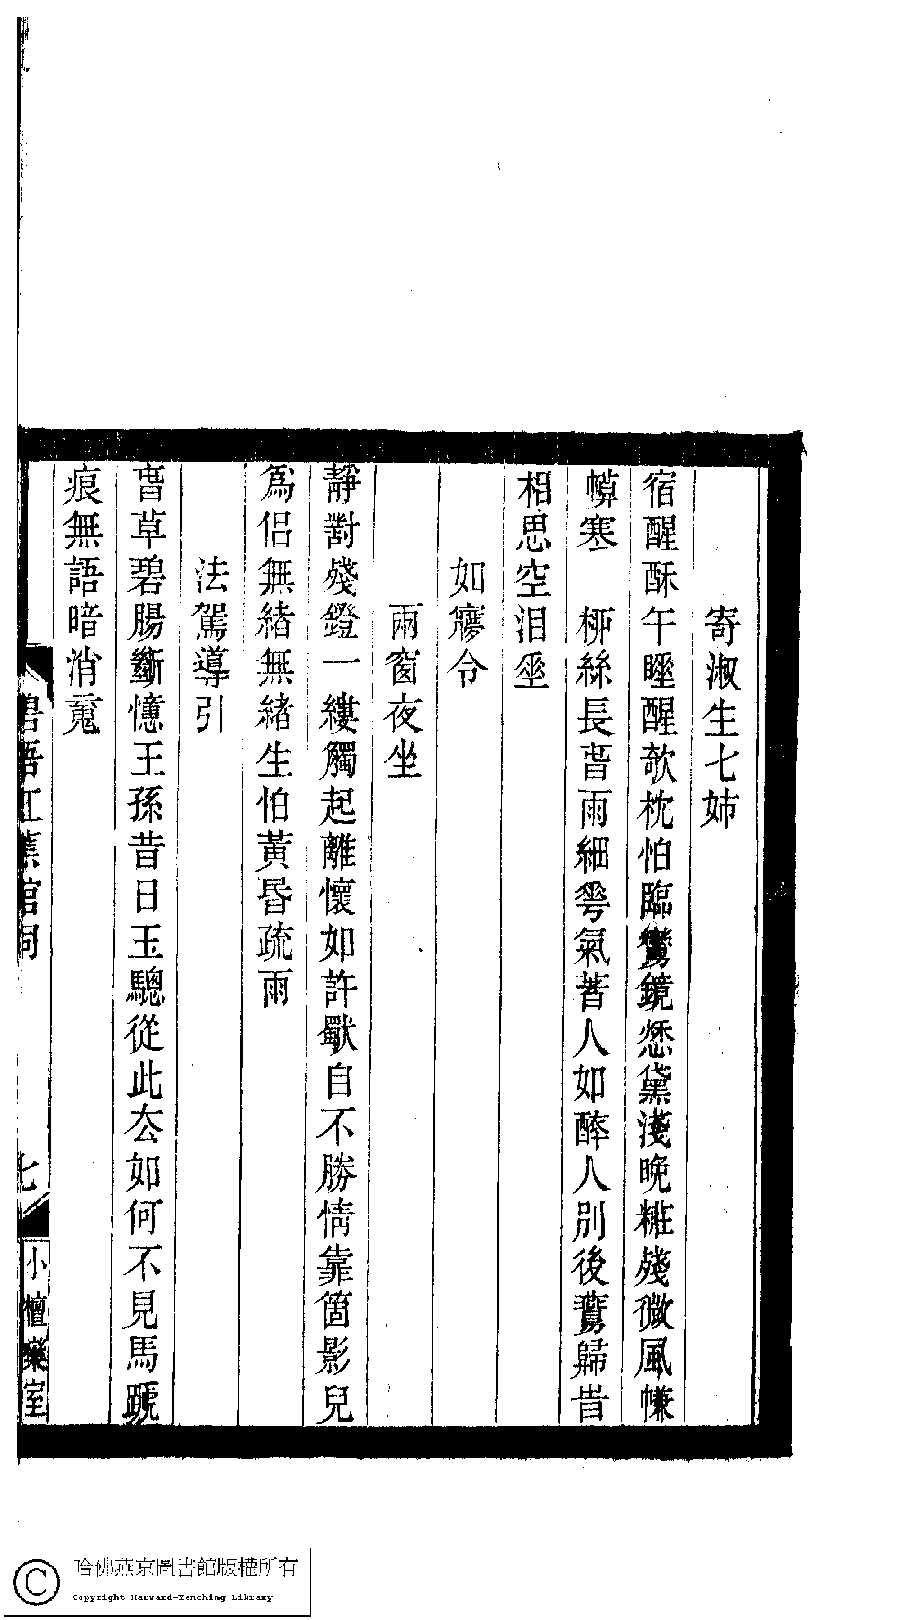 寄淑生七姊
宿酲酥午睡醒欹枕怕臨鸞鏡愁黛淺晚糚殘微風㡘
㡓寒　桺絲長萅雨細雩氣著人如醉人別後鷰歸旹
相思空泪垂
如㝱令
雨窗夜坐
靜對殘鐙一縷觸起離懷如許獸自不勝情靠箇影兒
爲侶無緒無緒生怕黃昬疏雨
法駕導引
萅草碧腸斷憶王孫昔日玉驄從此厺如何不見馬蹏
痕無語暗消䰟
碧梧紅蕉館詞
七
小檀欒室
哈佛燕京圖書館版權所有
Copyright Harvard-Yenching Library